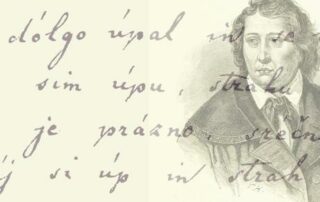 dólgo úpal in se
sim úpu, strahu
je prázno, sréčno
j si úp in strah